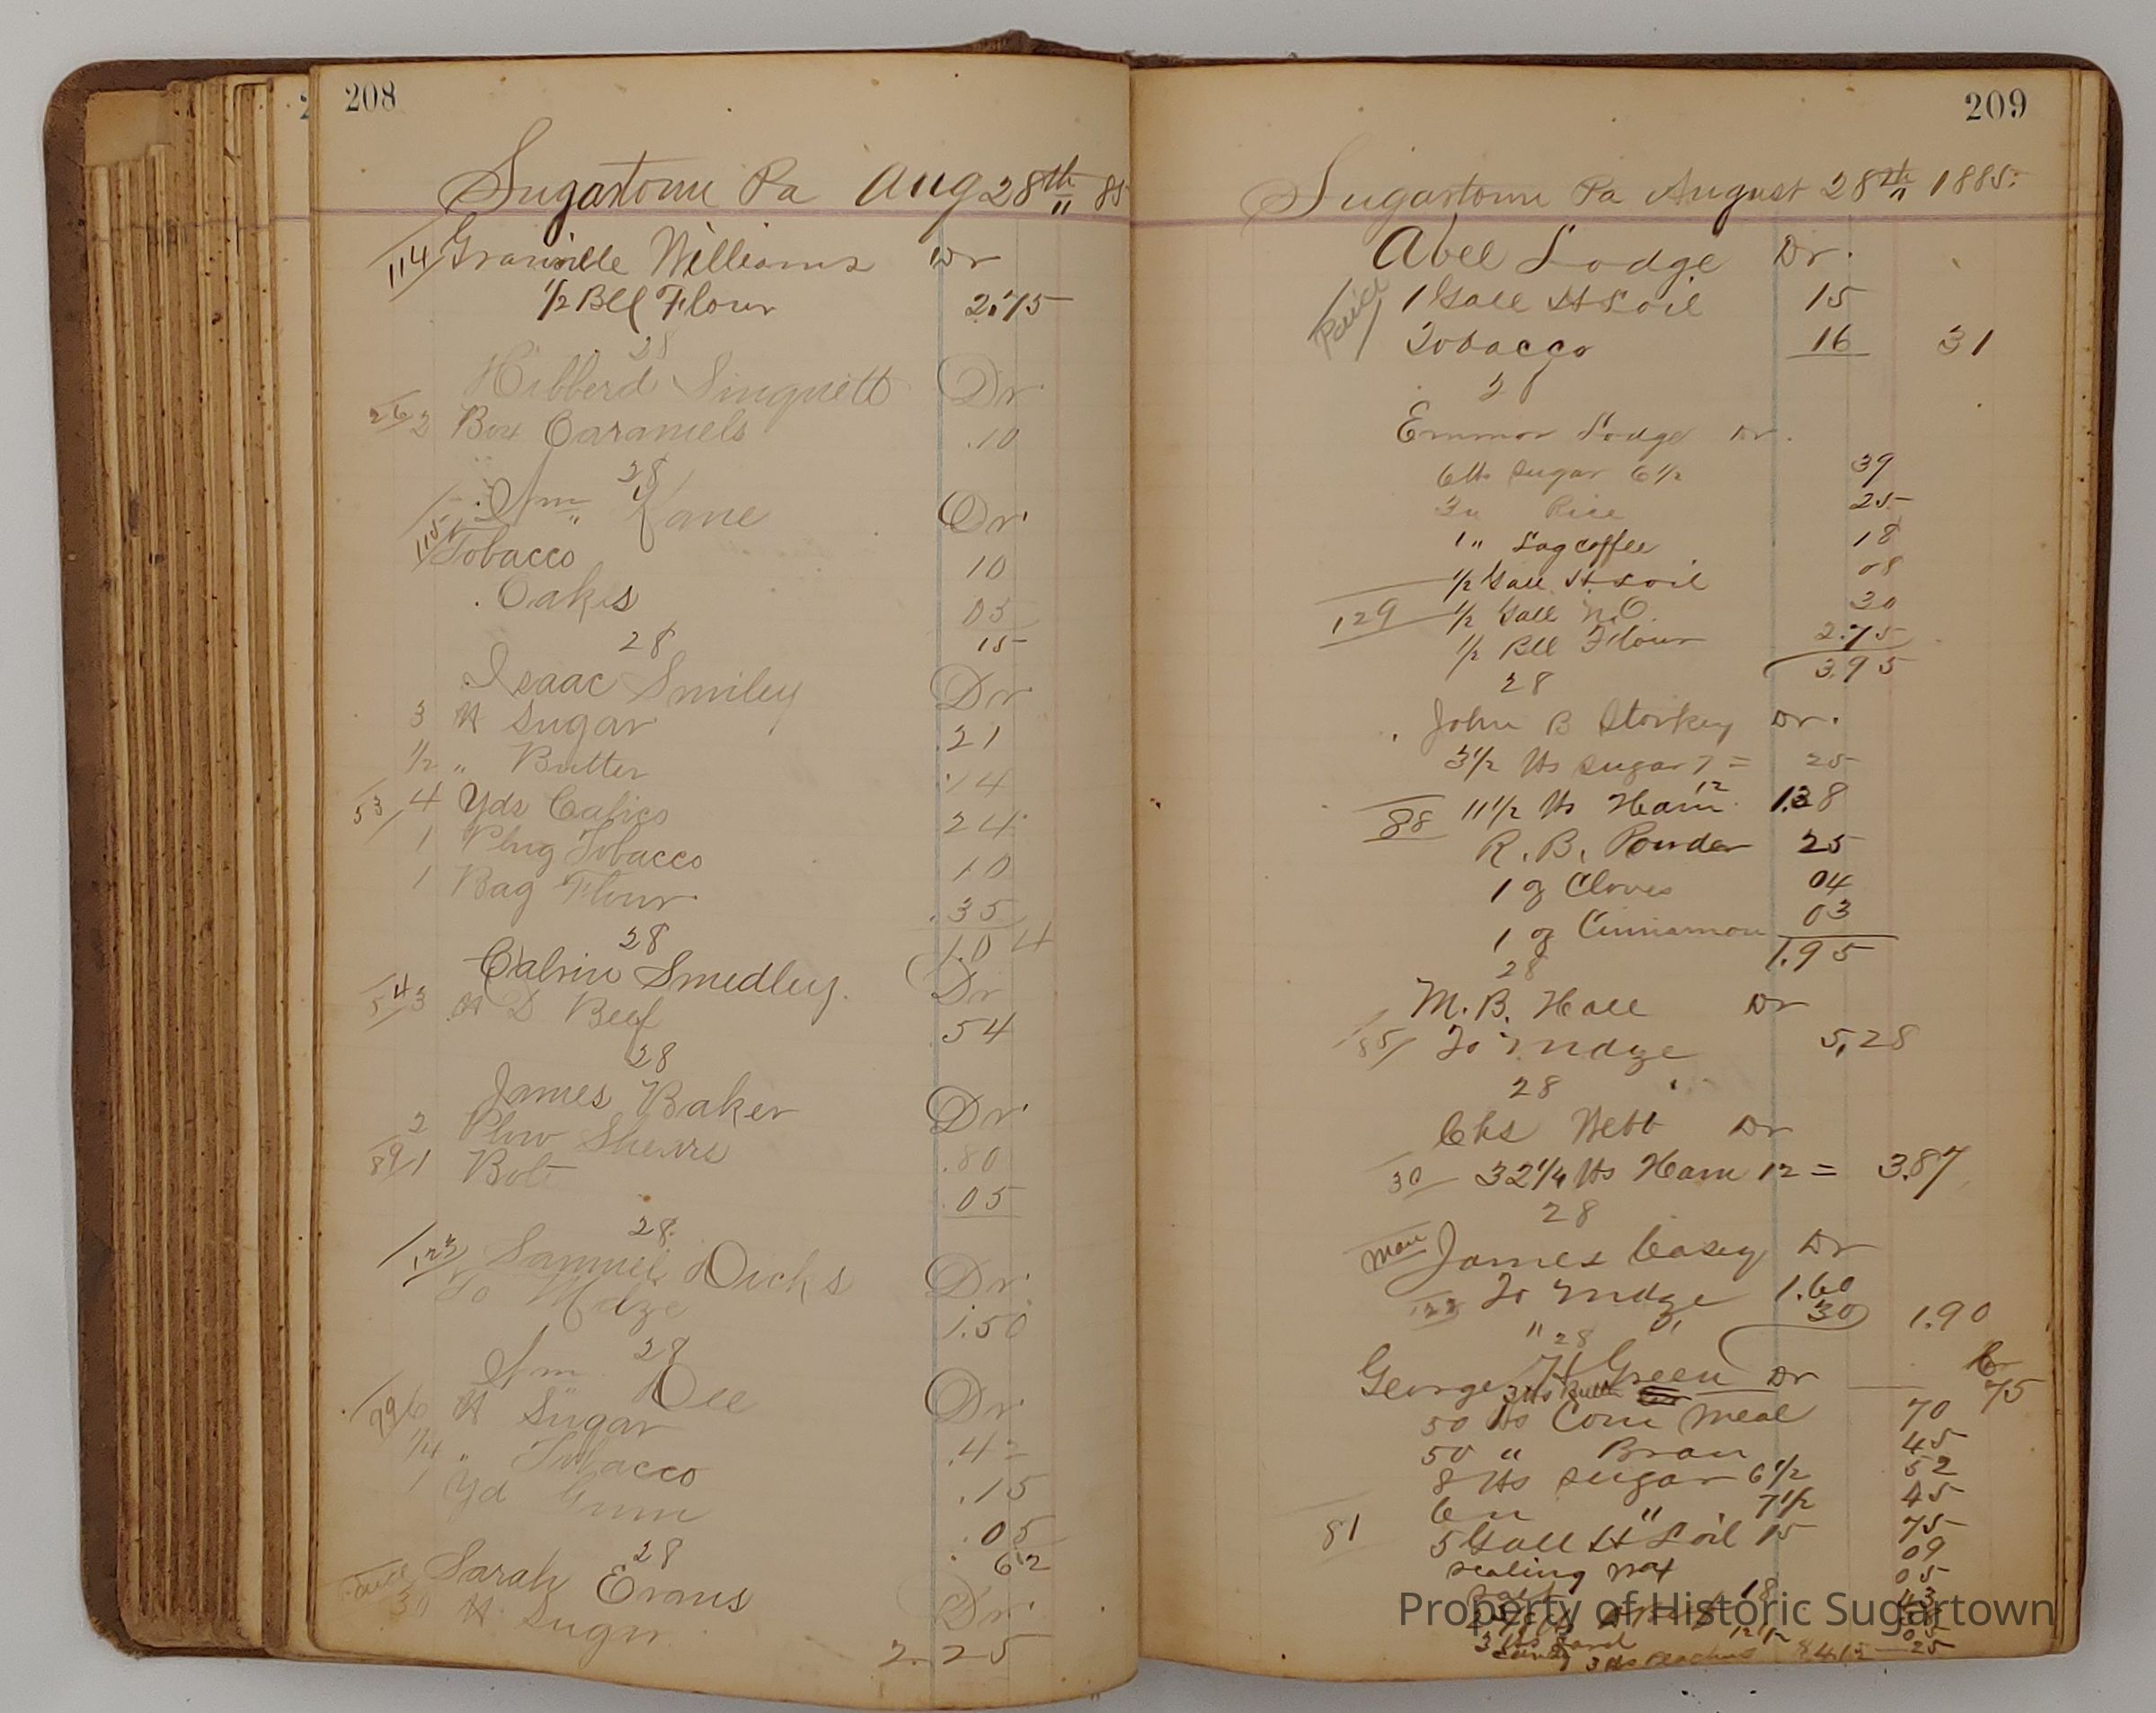 208
Sugartown Pa Aug 28th 85
114 Granville Williams Dr
1/2 Bll Flour 2.75
28
Hibberd Singuett Dr
26 2 Box Caramels .10
28
Wm Kane Dr
115 Tobacco 10
Cakes 05
15
28
Isaac Smiley Dr
3 lb Sugar .21
1/2 " Butter .14
53 4 Yds Calico 24
1 Plug Tobacco 10
1 Bag Flour .35
1.04
28
Calvin Smedley Dr
54 3 lb D Beef 54
28
James Baker Dr
2 Plow Shears .80
89 1 Bolt .05
28
123 Samuel Dicks Dr
To Mdze 1.50
28
Wm Dee Dr
79 6 lb Sugar .42
1/4 " Tobacco .15
1 Yd Gum .05
62
28
Sarah Evans Dr
30 lb Sugr 2.25
209
Sugartown Pa August 28th 1885
Abel Lodge Dr.
Paid 1 Gall H L oil 15
Tobacco 16 31
28
Emmor Lodge Dr.
6 lbs Sugar 6 1/2 39
3 " Rice 25
1 " Lag coffee 18
1/2 Gall H L oil 08
129 1/2 Gall N.O. 30
1/2 Bll Flour 2.75
3.95
28
John B Storkey Dr.
3 1/2 lbs Sugar 7 = 25
88 11 1/2 lbs Ham 12 1.38
R. B. Powder 25
1 oz Cloves 04
1 oz Cinnamon 03
1.95
28
M. B. Hall Dr
85 To Mdze 5.28
28
Chs Webb Dr
30 32 1/4 lbs Ham 12 = 3.87
28
Man James Casey Dr
122 To Mdze 1.60
" " 30 1.90
28
George H Green Dr Cr
3 lbs Butter 75
50 lbs Corn Meal 70
50 " Bran 45
8 lbs Sugar 6 1/2 52
6 " " 7 1/2 45
81 5 Gall H L oil 15 75
Sealing Wax 09
05
18
3 lbs Lard 12 1/2
Candy 05
3 lbs Peaches 25
Property of Historic Sugartown